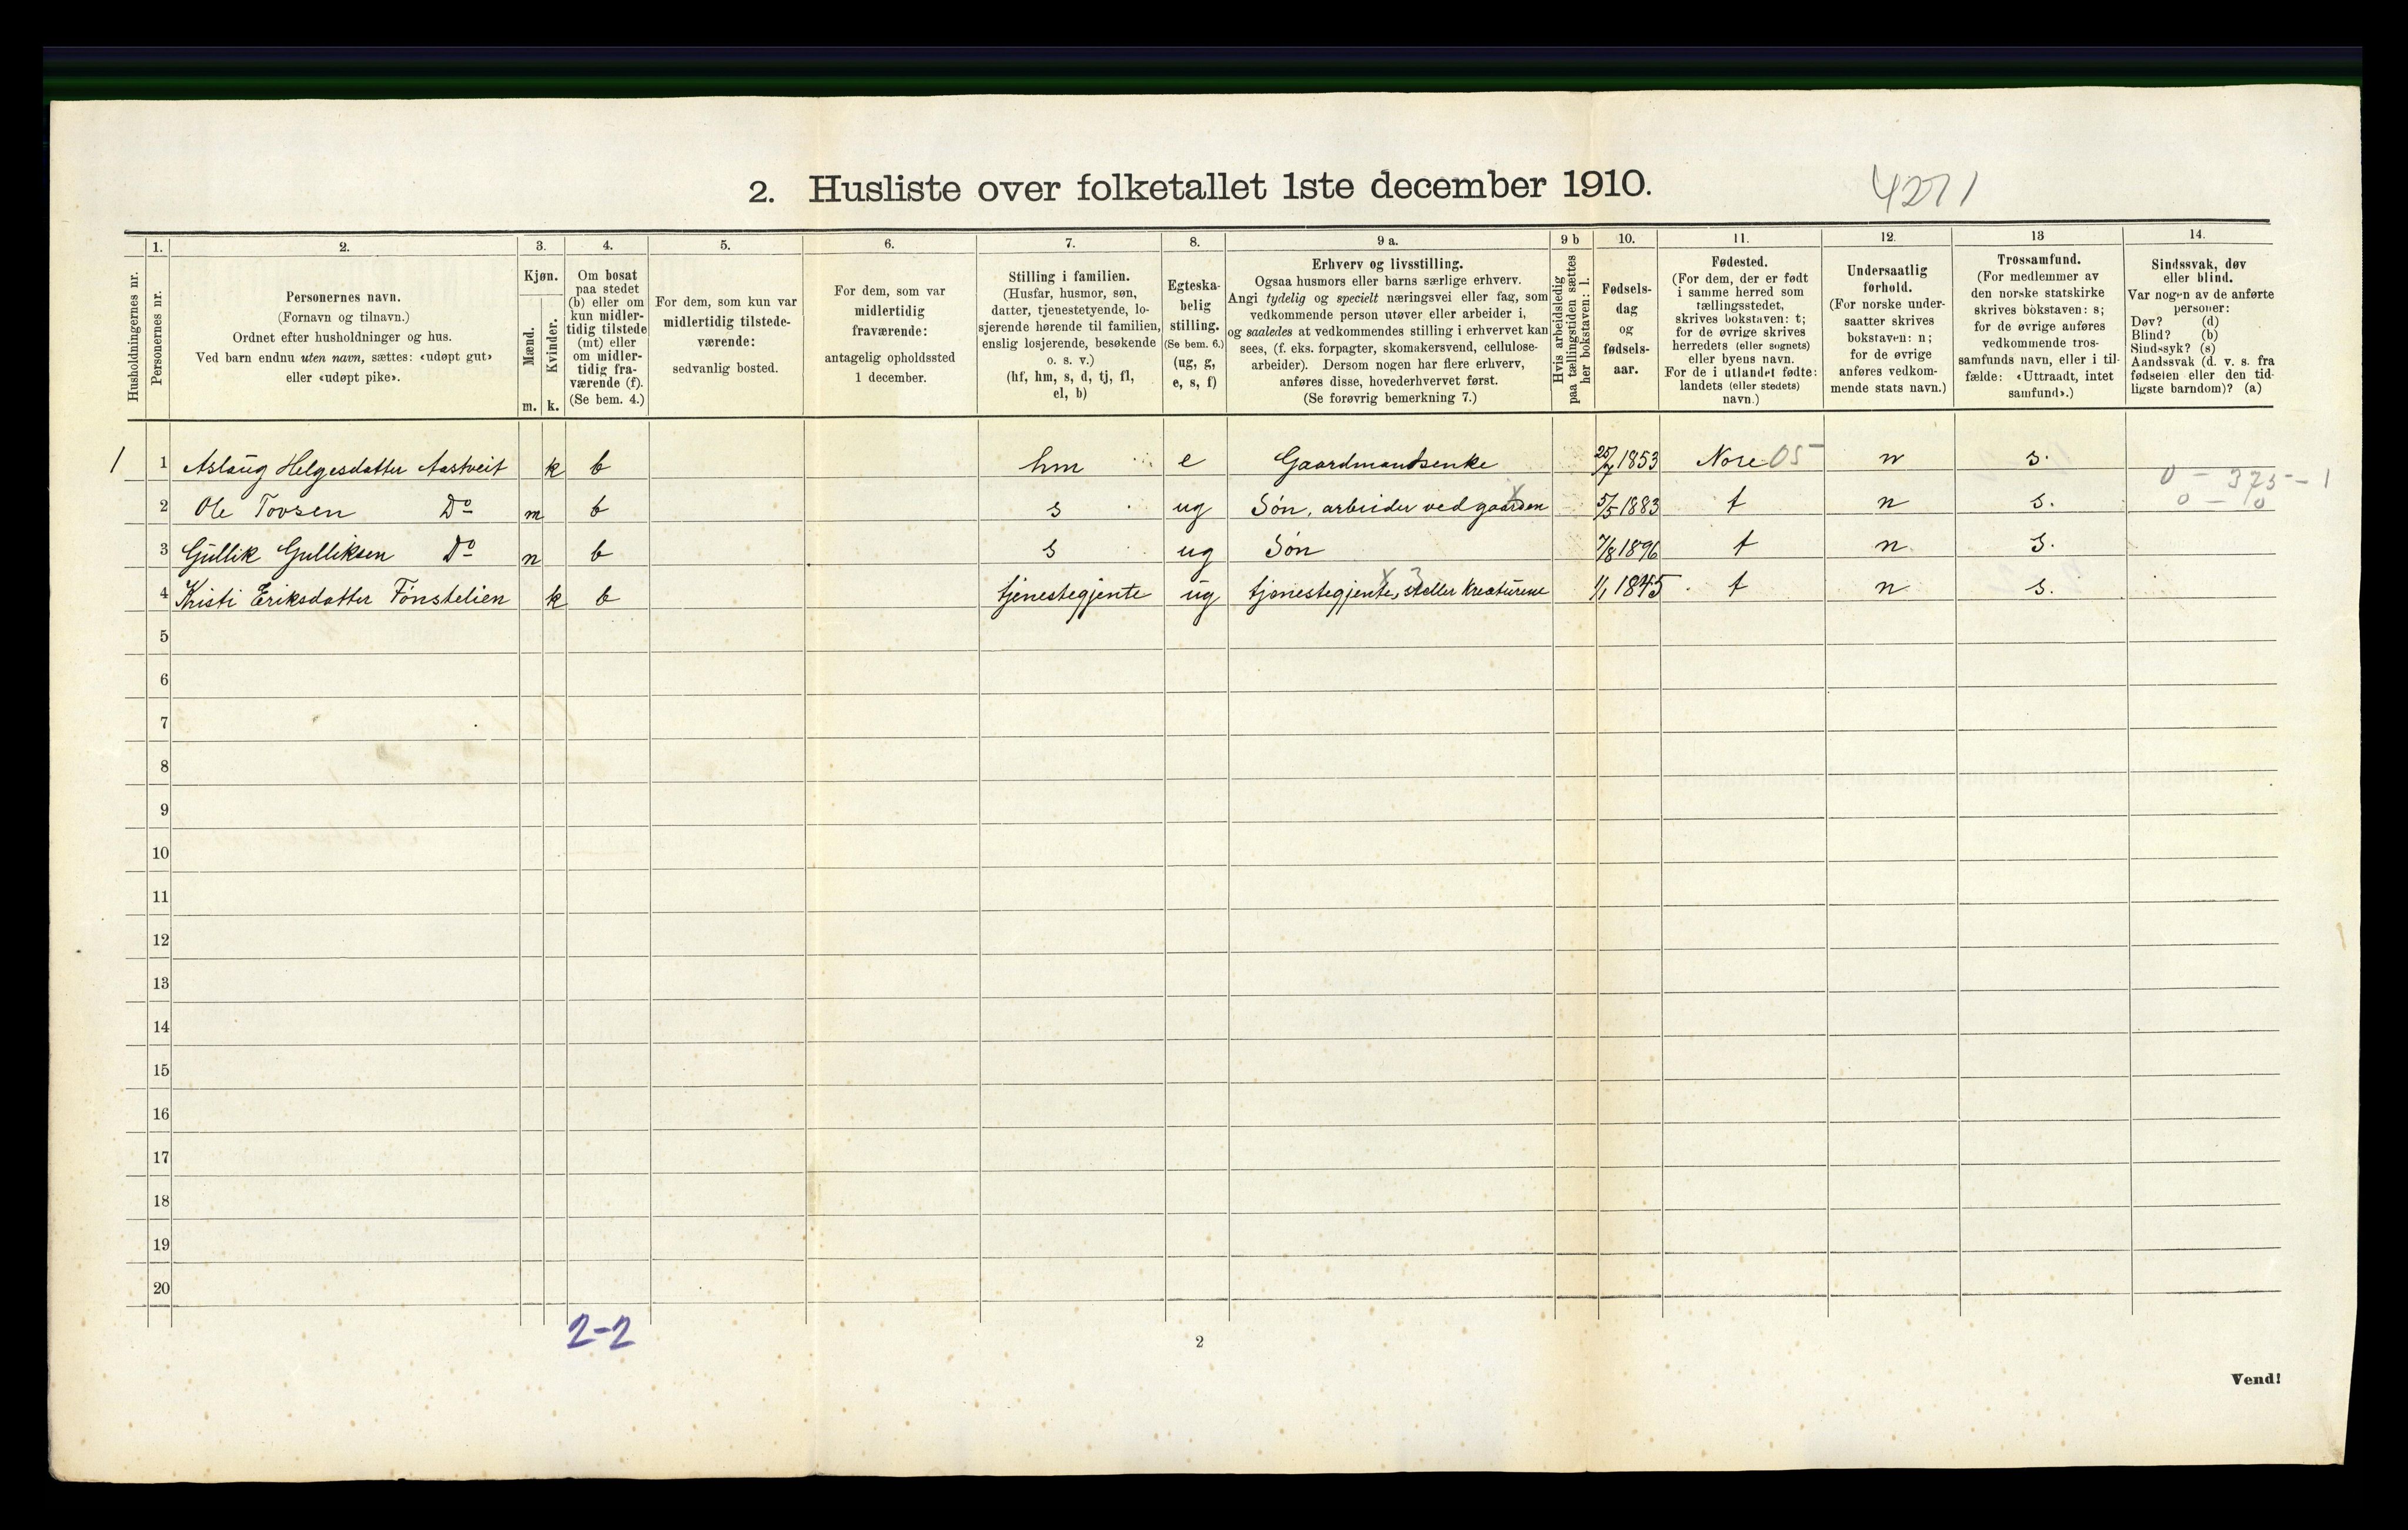 2. Husliste over folketallet 1ste december 1910.
4271
Husholdningernes nr.
1.
Personernes nr.
2.
Personernes navn.
(Fornavn og tilnavn.)
Ordnet efter husholdninger og hus.
Ved barn endnu uten navn, sættes: «udøpt gut»
eller «udøpt pike».
3.
Kjøn.
Mænd.
Kvinder.
m. k.
4.
Om bosat
paa stedet
(b) eller om
kun midler-
tidig tilstede
(mt) eller
om midler-
tidig fra-
værende (f).
(Se bem. 4.)
5.
For dem, som kun var
midlertidig tilstede-
værende:
sedvanlig bosted.
6.
For dem, som var
midlertidig
fraværende:
antagelig opholdssted
1 december.
7.
Stilling i familien.
(Husfar, husmor, søn,
datter, tjenestetyende, lo-
sjerende hørende til familien,
enslig losjerende, besøkende
o. s. v.)
(hf, hm, s, d, tj, fl,
el, b)
8.
Egteska-
belig
stilling.
(Se bem. 6.)
(ug, g,
e, s, f)
9 a.
Erhverv og livsstilling.
Ogsaa husmors eller barns særlige erhverv.
Angi tydelig og specielt næringsvei eller fag, som
vedkommende person utøver eller arbeider i,
og saaledes at vedkommendes stilling i erhvervet kan
sees, (f. eks. forpagter, skomakersvend, cellulose-
arbeider). Dersom nogen har flere erhverv,
anføres disse, hovederhvervet først.
(Se forøvrig bemerkning 7.)
9 b
Hvis arbeidsledig
paa tællingstiden sættes
her bokstaven: l.
10.
Fødsels-
dag
og
fødsels-
aar.
11.
Fødested.
(For dem, der er født
i samme herred som
tællingsstedet,
skrives bokstaven: t;
for de øvrige skrives
herredets (eller sognets)
eller byens navn.
For de i utlandet fødte:
landets (eller stedets)
navn.)
12.
Undersaatlig
forhold.
(For norske under-
saatter skrives
bokstaven: n;
for de øvrige
anføres vedkom-
mende stats navn.)
13
Trossamfund.
(For medlemmer av
den norske statskirke
skrives bokstaven: s;
for de øvrige anføres
vedkommende tros-
samfunds navn, eller i til-
fælde: «Uttraadt, intet
samfund».)
14.
Sindssvak, døv
eller blind.
Var nogen av de anførte
personer:
Døv? (d)
Blind? (b)
Sindssyk? (s)
Aandssvak (d. v. s. fra
fødselen eller den tid-
ligste barndom)? (a)
1 1 Aslaug Helgesdatter Aastveit k b hm e Gaardmandsenke 25/7 1853 Nore 05 n s.
0 - 375 - 1
2 Ole Tovsen Do m b s ug Søn, arbeider ved gaarden 5/5 1883 t n s. 0 - 10
3 Gullik Gulliksen Do n b s ug Søn 7/8 1896 t n s.
4 Kristi Eriksdatter Fønstelien k b tjenestegjente ug tjenestegjente, steller Kreaturene 1/1 1845 t n s.
5
6
7
8
9
10
11
12
13
14
15
16
17
18
19
20
2-2
2
Vend!